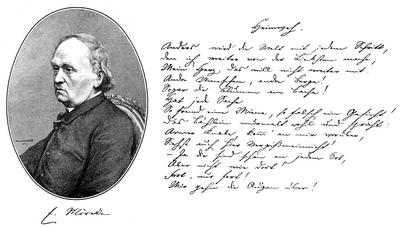 Heimweh.
Anders wird die Welt mit jedem Schritt,
den ich weiter von der Liebsten mache,
Mein Herz das will nicht weiter mit
Andre Menschen, andre Berge!
Sogar die Blumen am Bache!
Hat jede Sache
So fremd eine Miene, so falsch ein Gesicht!
Das Bächlein murmelt wohl und spricht:
Armer Knabe, komm' an mir vorüber,
Siehst auch hier Vergißmeinnicht!
– Ja die sind schön an jedem Ort,
Aber nicht wie dort.
Fort, nur fort!
Mir gehn die Augen über!
E. Mörike